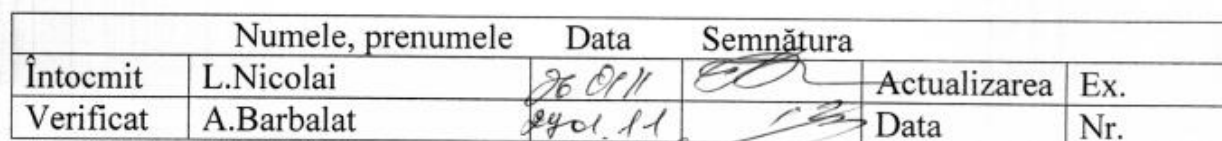 Numele, prenumele Data Semnătura
Întocmit L.Nicolai 26 01 11 Actualizarea Ex.
Verificat A.Barbalat Data Nr.